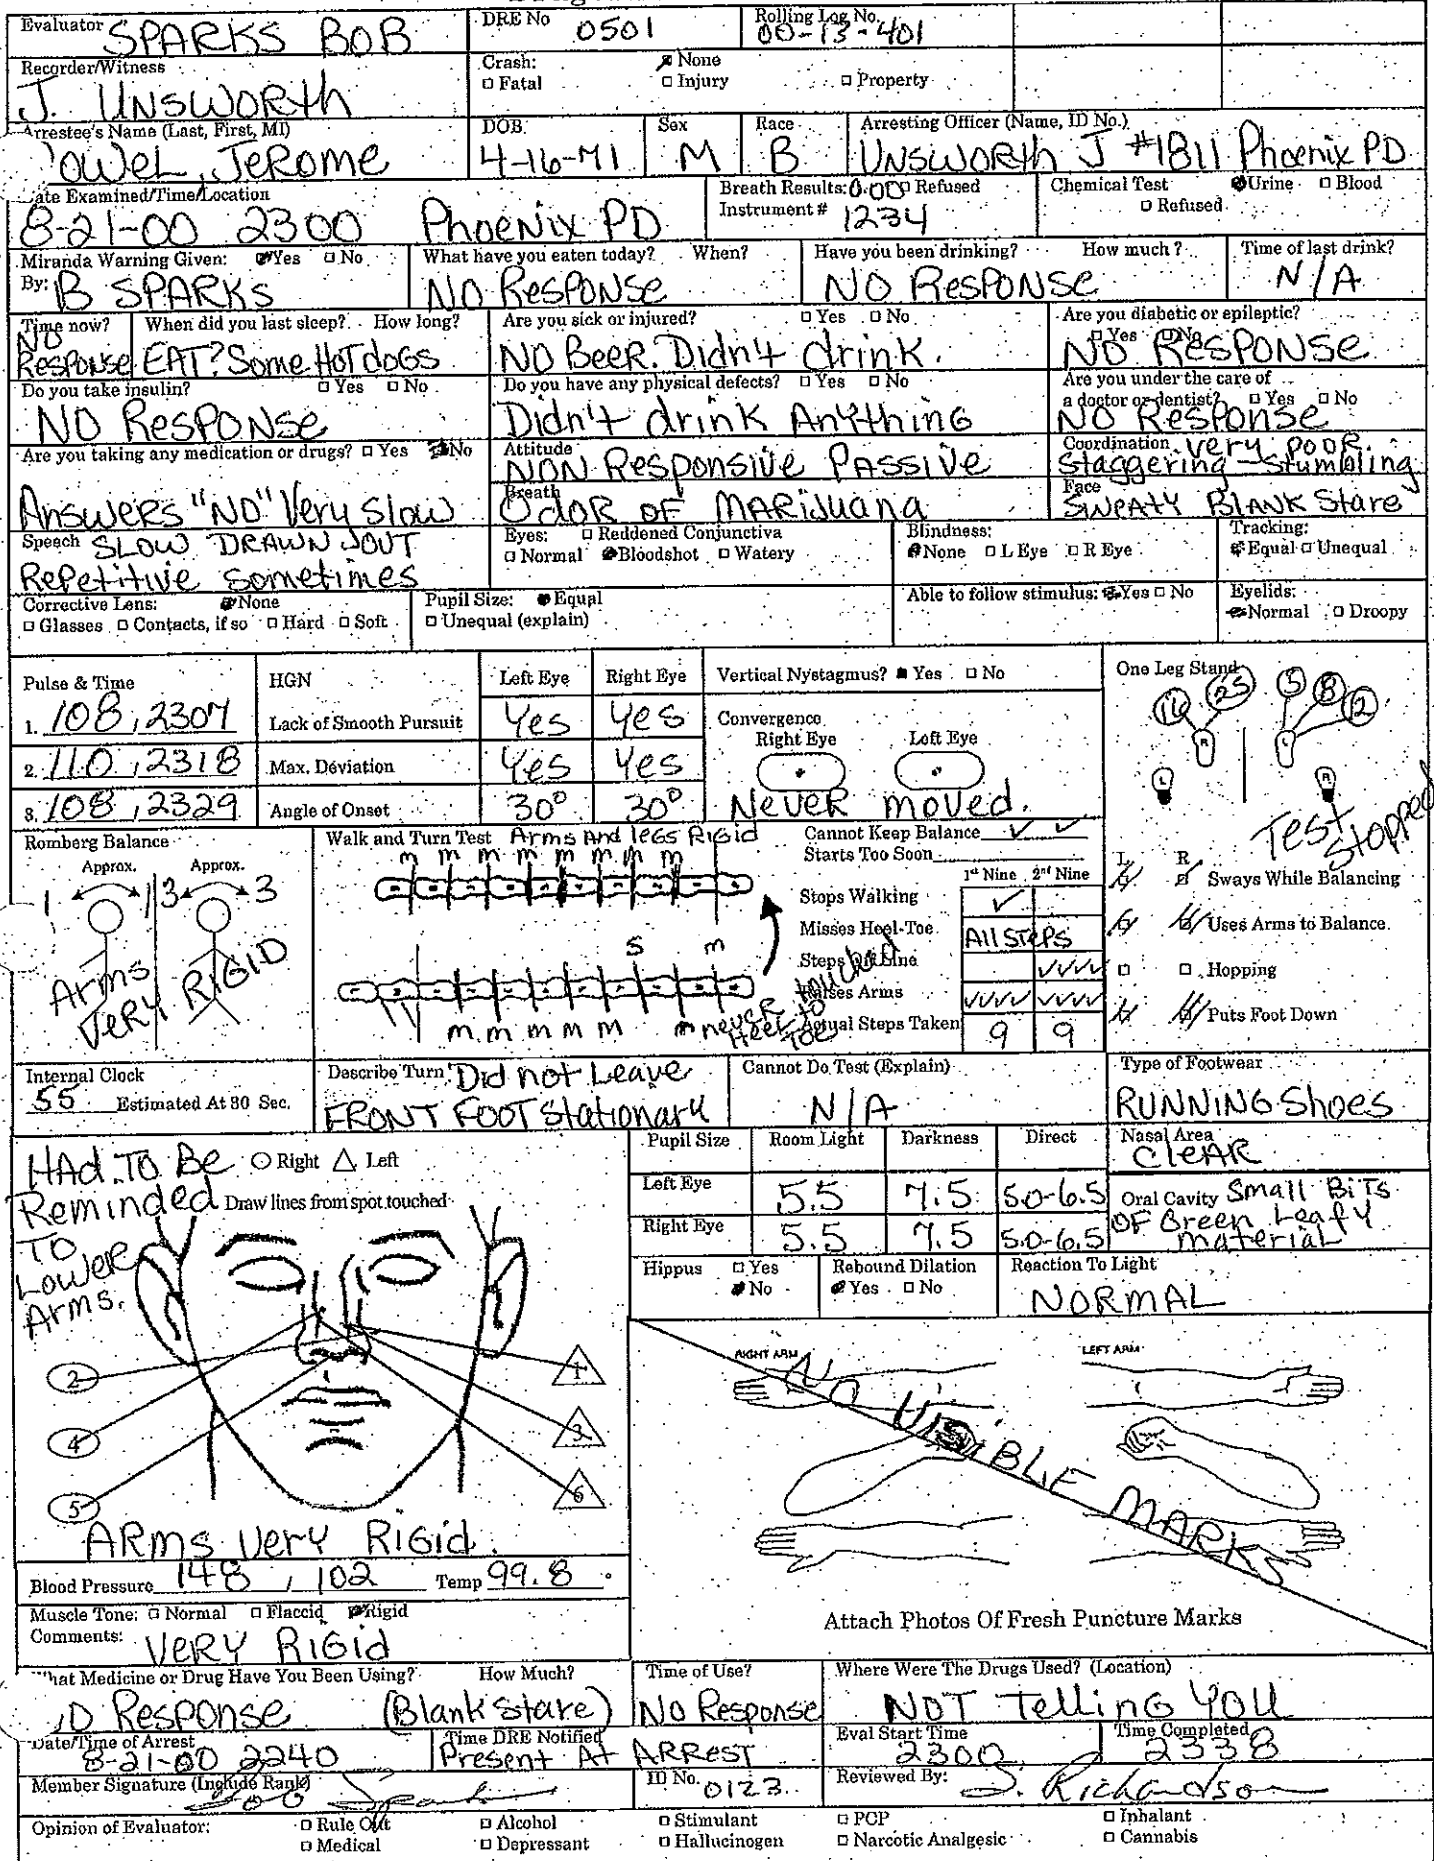 Evaluator SPARKS BOB
DRE No 0501
Rolling Log No. 00-13-401
Recorder/Witness J. UNSWORTH
Crash: None
Fatal Injury Property
Arrestee's Name (Last, First, MI) OWEL, JEROME
DOB: 4-16-71
Sex M
Race B
Arresting Officer (Name, ID No.) UNSWORTH J #1811 Phoenix PD
ate Examined/Time/Location
8-21-00 2300 Phoenix PD
Breath Results: 0.00 Refused
Instrument # 1234
Chemical Test Urine Blood
Refused
Miranda Warning Given: Yes No
By: B SPARKS
What have you eaten today? When?
NO Response
Have you been drinking? How much?
NO Response
Time of last drink?
N/A
Time now?
NO Response
When did you last sleep? How long?
EAT? Some HOT dOGS
Are you sick or injured? Yes No
NO Beer. Didn't drink.
Are you diabetic or epileptic?
Yes No
NO Response
Do you take insulin? Yes No
NO Response
Do you have any physical defects? Yes No
Didn't drink Anything
Are you under the care of
a doctor or dentist? Yes No
NO Response
Are you taking any medication or drugs? Yes No
Answers "NO" Very Slow
Attitude
NON Responsive Passive
Coordination very poor.
Staggering - Stumbling
Breath
Odor OF MARiJuana
Face
SWEATY BLANK Stare
Speech SLOW DRAWN OUT
Repetitive sometimes
Eyes: Reddened Conjunctiva
Normal Bloodshot Watery
Blindness:
None L Eye R Eye
Tracking:
Equal Unequal
Corrective Lens: None
Glasses Contacts, if so Hard Soft
Pupil Size: Equal
Unequal (explain)
Able to follow stimulus: Yes No
Eyelids:
Normal Droopy
Pulse & Time
1. 108, 2307
2. 110, 2318
3. 108, 2329
HGN Left Eye Right Eye
Lack of Smooth Pursuit Yes Yes
Max. Deviation Yes Yes
Angle of Onset 30° 30°
Vertical Nystagmus? Yes No
Convergence
Right Eye Left Eye
Never moved.
One Leg Stand
16 25 5 8 12
R L
L R
Test Stopped
Romberg Balance
Approx. Approx.
1 1 3 3
Arms very RIGID
Walk and Turn Test Arms And legs Rigid
m m m m m m m m
S m
m m m m m m
never touched Heel to Toe
Cannot Keep Balance
Starts Too Soon
1st Nine 2nd Nine
Stops Walking
Misses Heel-Toe All STePS
Steps Off Line
Raises Arms
Actual Steps Taken 9 9
L R
Sways While Balancing
Uses Arms to Balance.
Hopping
Puts Foot Down
Internal Clock
55 Estimated At 30 Sec.
Describe Turn Did not Leave
FRONT FOOT Stationary
Cannot Do Test (Explain)
N/A
Type of Footwear
RUNNING Shoes
HAd To Be Reminded TO Lower Arms.
Right Left
Draw lines from spot touched
2 4 5
1 3 6
ARMS very Rigid.
Pupil Size Room Light Darkness Direct
Left Eye 5.5 7.5 5.0-6.5
Right Eye 5.5 7.5 5.0-6.5
Nasal Area
CleAR
Oral Cavity Small BiTs
OF Green Leafy
material
Hippus Yes
No
Rebound Dilation
Yes No
Reaction To Light
NORMAL
RIGHT ARM
LEFT ARM
NO VISIBLE MARKS
Attach Photos Of Fresh Puncture Marks
Blood Pressure 148 / 102 Temp 99.8
Muscle Tone: Normal Flaccid Rigid
Comments: VERY RIGId
hat Medicine or Drug Have You Been Using? How Much?
O Response (Blank stare)
Time of Use?
No Response
Where Were The Drugs Used? (Location)
NOT Telling YOU
Date/Time of Arrest
8-21-00 2240
Time DRE Notified
Present At ARREST
Eval Start Time
2300
Time Completed
2338
Member Signature (Include Rank)
ID No. 0123
Reviewed By: S. Richardson
Opinion of Evaluator: Rule Out Alcohol Stimulant PCP Inhalant
Medical Depressant Hallucinogen Narcotic Analgesic Cannabis